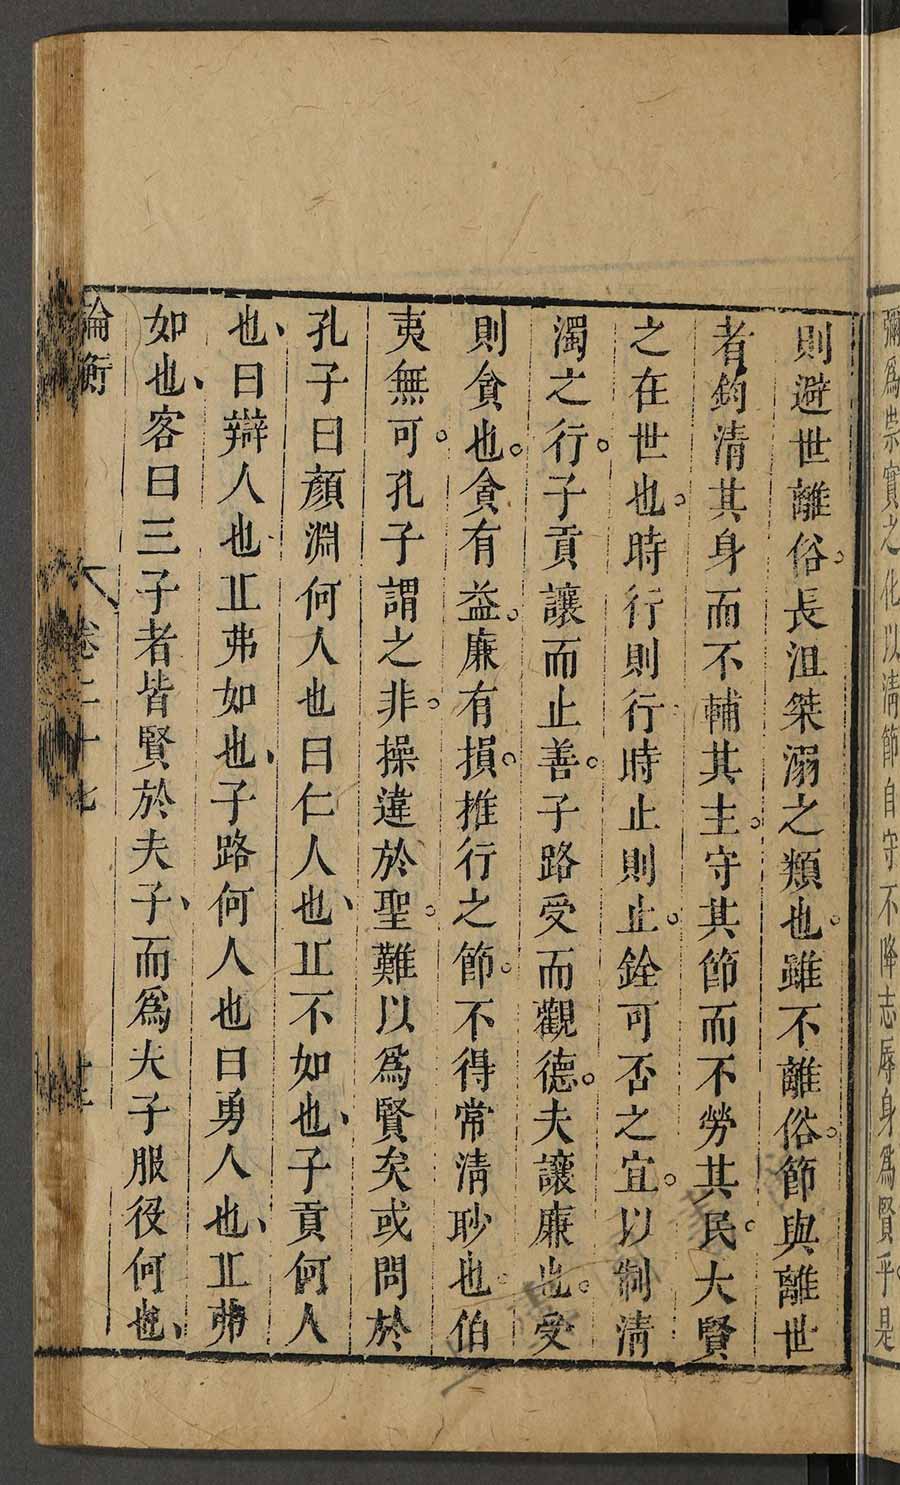 彌爲崇實之化以清節自守不降志辱身爲賢乎是
則避世離俗長沮桀溺之類也雖不離俗節與離世
者鈞清其身而不輔其主守其節而不勞其民大賢
之在世也時行則行時止則止銓可否之宜以制清
濁之行子貢讓而止善子路受而觀德夫讓廉也受
則貪也貪有益廉有損推行之節不得常清眇也伯
夷無可孔子謂之非操違於聖難以爲賢矣或問於
孔子曰顏淵何人也曰仁人也丘不如也子貢何人
也曰辯人也丘弗如也子路何人也曰勇人也丘弗
如也客曰三子者皆賢於夫子而爲夫子服役何也
論衡 卷二十七